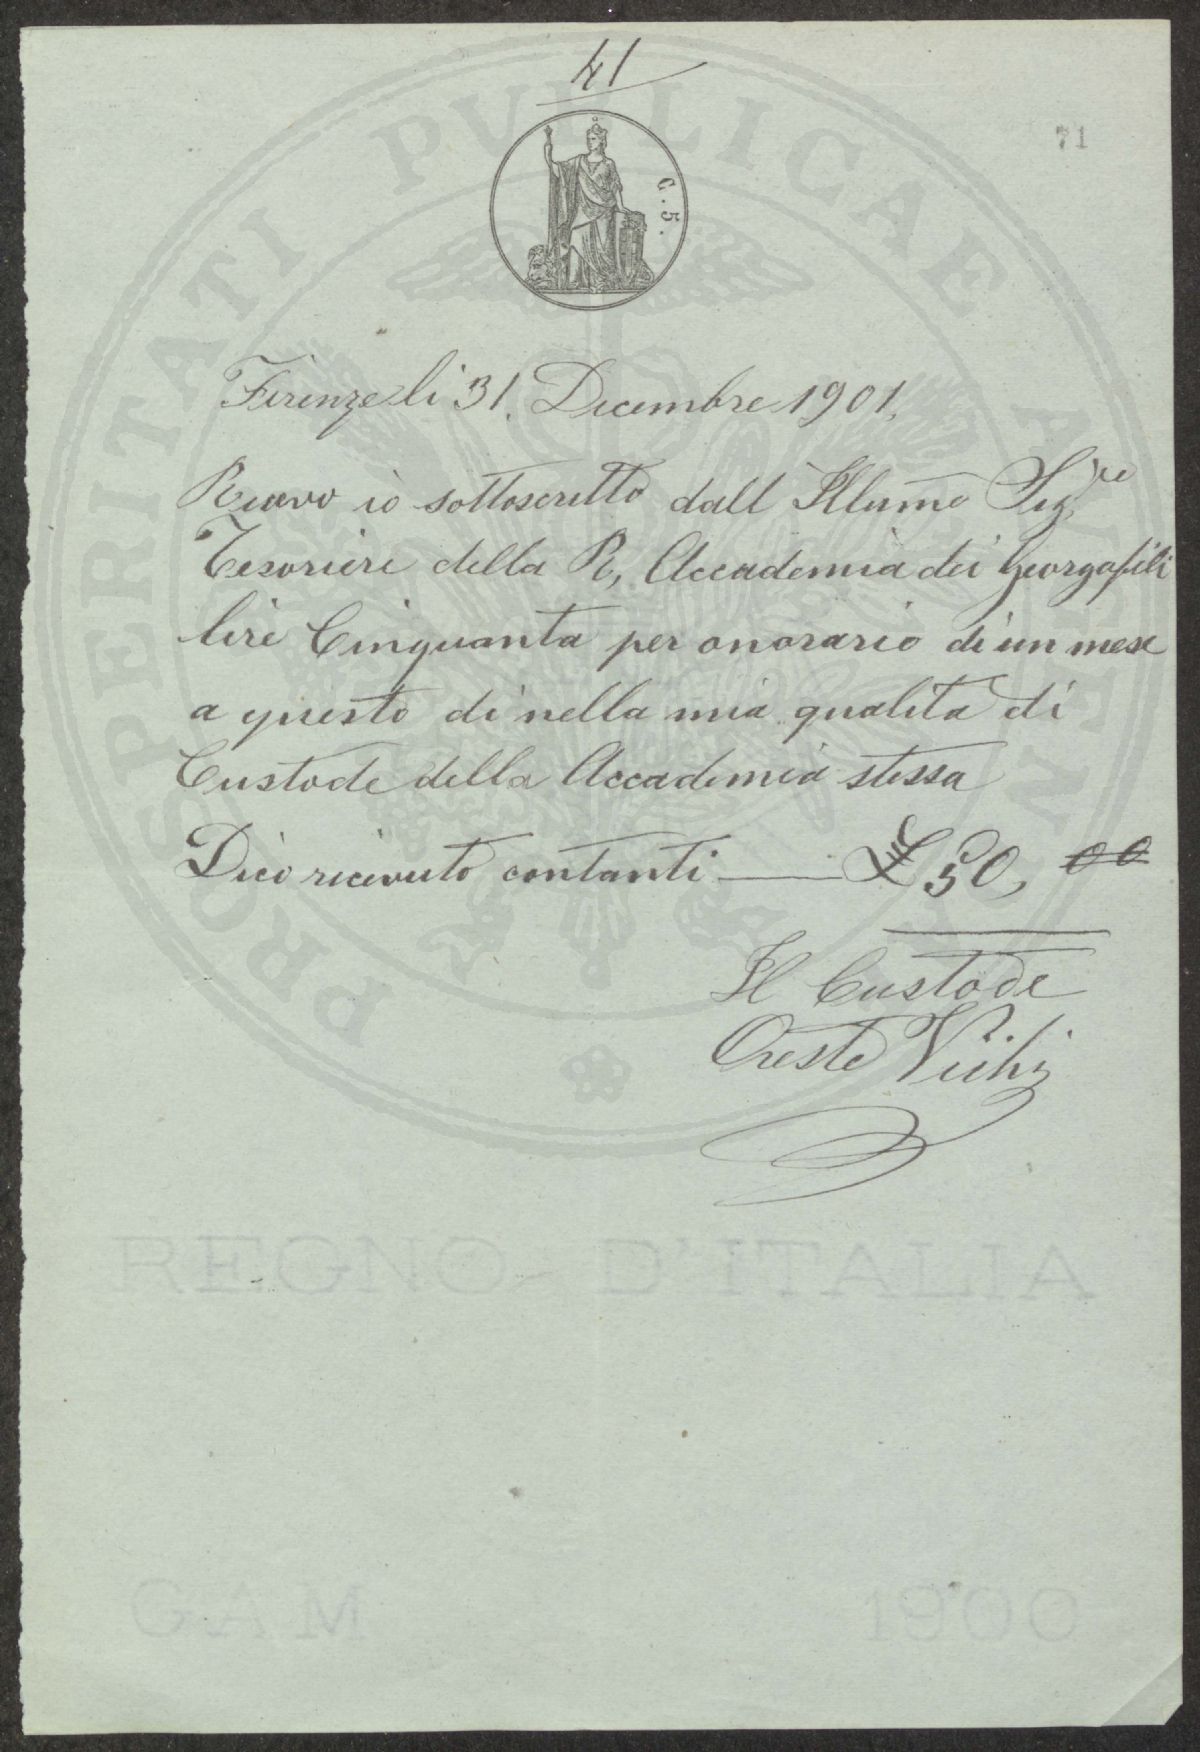 41
71
C. 5.
Firenze li 31. Decembre 1901.
Ricevo io sottoscritto dall Illumo Sigre
Tesoriere della R. Accademia dei Georgofili
lire Cinquanta per onorario di un mese
a questo di nella mia qualita di
Custode della Accademia stessa
Dico ricevuto contanti — £ 50, 00
Il Custode
Oreste Vichi
PROSPERITATI PUBLICAE
REGNO D'ITALIA
GAM 1900